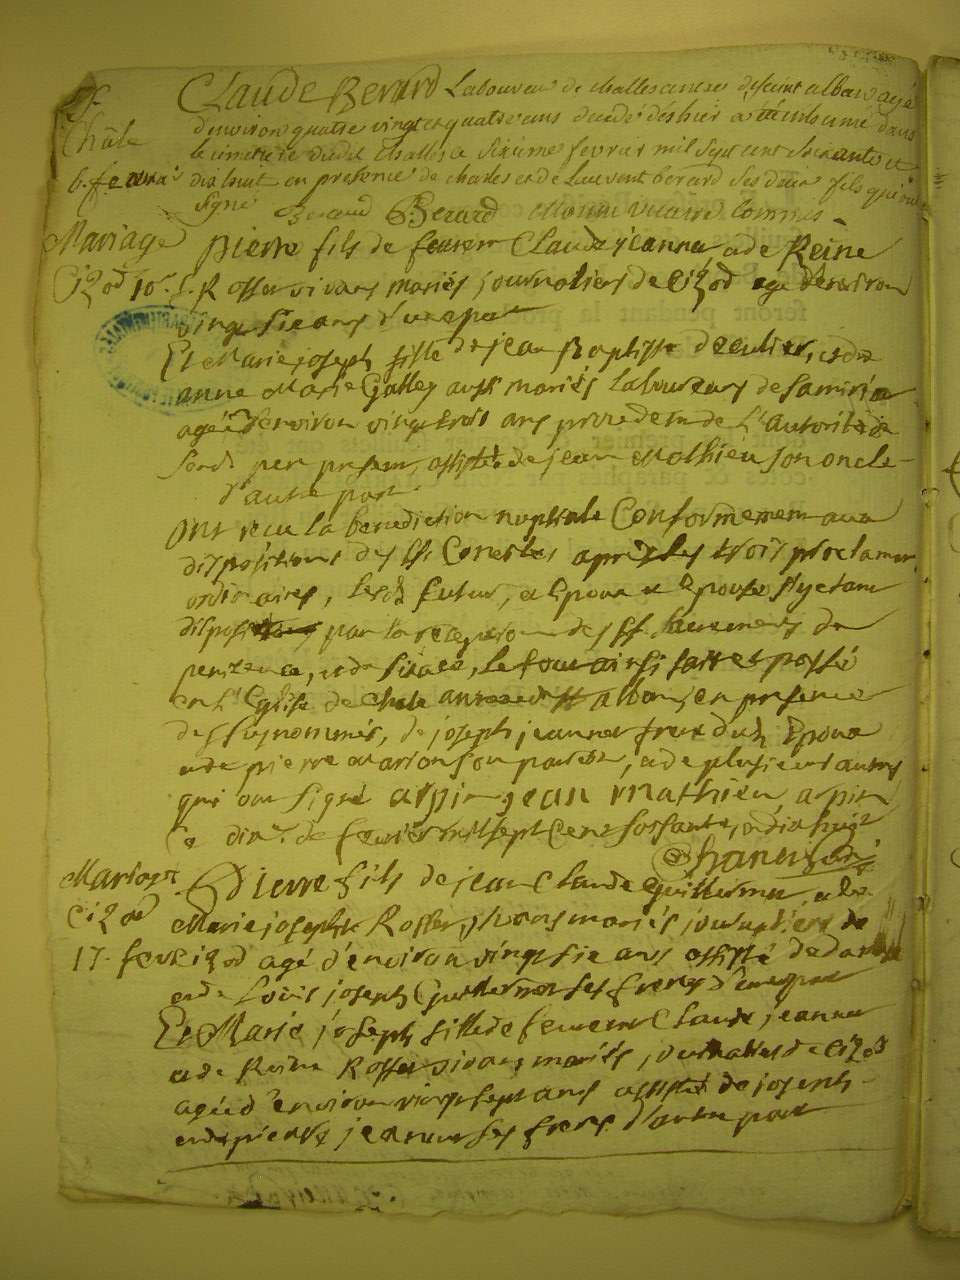 Claude Berard Laboureur de challes annexe de saint alban agé
d'environ quatre vingt et quatre ans decedé dès hier a été inhumé dans
Châle
le cimetiere dudit Challes ce sixieme fevrier mil sept cent soixante et
6. fevrier
dix huit en presence de charles et de Laurent berard ses deux fils qui ont
signé Beraud C Berard Monin vicaire Commis
Mariage
pierre fils de feurent Claude jeannet a de Reine
Cizod 10. f.
Rosset vivans mariés journaliers de Cizod agé denviron
vingt sie ans d'une part
Et Marie joseph fille de jean Baptiste decullier, et de
anne Marie Galley aussi mariés Laboureurs de Samiria
ageé denviron vingt trois ans procedent de L'autorité de
sond. pere present, assistée de jean Mathieu son oncle
d'autre part
ont recu la benediction nuptiale Conformement aux
dispositions des Sts Conciles après les trois proclamons
ordinaires, lesd. futur, Epoux et Epouse s'y etant
disposés par la reception des SS. Sacremens de
penitence, et de, le tout ainsi fait et passé
en L'Eglise de Chale annexe de St alban, en presence
des susnommés, de joseph jeannet frere dud. Epoux
et de pierre Marion son parent, a de plusieurs autres
qui ont signé arpin jean mathieu arpin
Ce dix. de fevrier mil sept Cent soixante, et dix huit
Mariage
Pierre fils de jean Claude Guillermet, et de
Cizod
Marie josephte Rosset vivans mariés journaliers de
17. fevr.
Cizod agé d'environ vingt sie ans assisté de
et de Loüis joseph Guillermet ses freres d'une part
Et Marie joseph fille de feurent Claude jeannet
a de Reine Rosset vivans mariés, journaliers de Cizod
ageé d'environ vingt sept ans assistée de joseph
et de pierre jeannet ses freres d'autre part